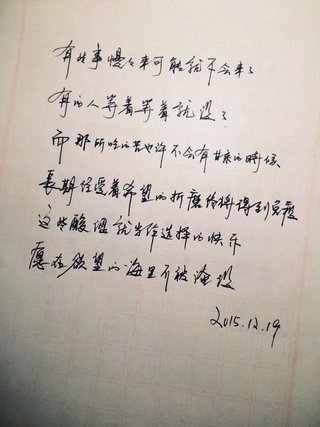 有些事慢慢来可能就不会来了
有的人等着等着就没了
而那所吃的苦也许不会有甘来的時候
長期经受着希望的折磨终将得到免疫
这些酸涩就当作选择的快下
愿在欲望的海里不被淹没
2015.12.19